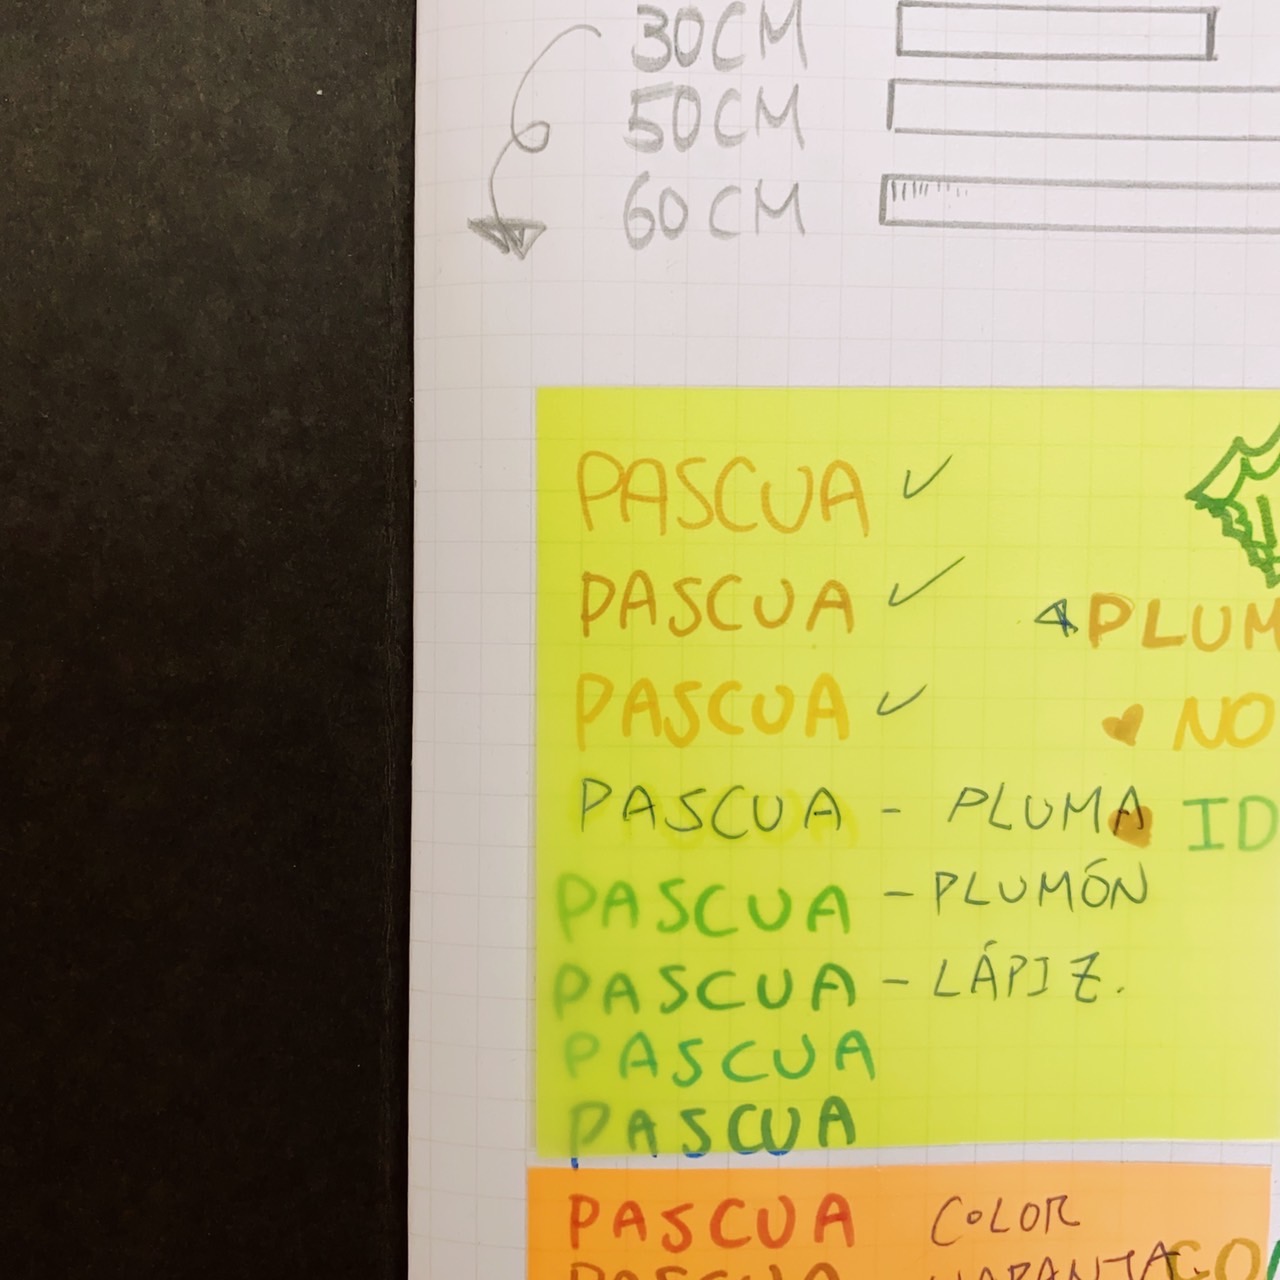 30CM
50CM
60CM
PASCUA ✓
PASCUA ✓
PLUM
PASCUA ✓
NO
PASCUA - PLUMA
ID
PASCUA - PLUMÓN
PASCUA - LÁPIZ.
PASCUA
PASCUA
PASCUA COLOR
PASCUA